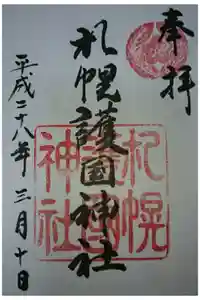 奉拝
札幌護國神社
平成二十八年 三月十日
札幌護國神社